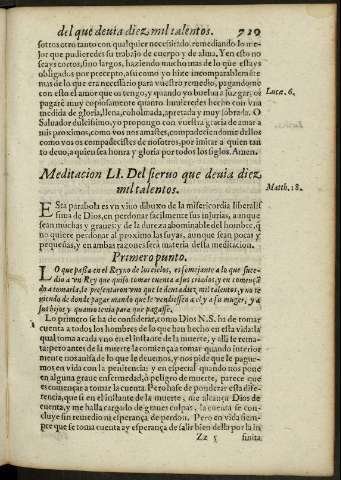 del que deuia diez mil talentos. 729
sottos otro tanto con qualquier necessitado, remediando lo me-
jor que pudieredes su trabajo de cuerpo y de alma, Y en esto no
seays cortos, sino largos, haziendo mucho mas de lo que estays
obligados por precepto, assi como yo hize incomparablemẽte
mas de lo que era necessario para vuestro remedio, pagandome
con esto el amor que os tengo, y quando yo buelua a juzgar, os
pagarè muy copiosamente quanto huuieredes hecho con vna
medida de gloria, llena, colmada, apretada y muy sobrada. O
Saluador dulcissimo, yo propongo con vuestra gracia de amar a
mis proximos, como vos nos amastes, compadeciendome dellos
como vos os compadecistes de nosotros, por imitar a quien tan
to deuo, a quien sea honra y gloria por todos los siglos. Amen.
Lucæ. 6.
Meditacion LI. Del sieruo que deuia diez
mil talentos.
Matth. 18.
ESta parabola es vn viuo dibuxo de la misericordia liberalis
sima de Dios, en perdonar facilmente sus injurias, aunque
sean muchas y graues: y de la dureza abominable del hombre, q̃
no quiere perdonar al proximo las suyas, aunque sean pocas y
pequeñas, y en ambas razones serà materia desta meditacion.
Primero punto.
LO que passa en el Reyno de los cielos, es semejante a lo que suce-
dio a vn Rey que quiso tomar cuenta a sus criados, y en començã
do a tomarla, le presentaron vno que le deuia diez mil talentos, y no te
niendo de donde pagar mando que le vendiessen a el y a su muger, y a
sus hijos y quanto tenia para que pagasse.
Lo primero se ha de considerar, como Dios N.S. ha de tomar
cuenta a todos los hombres de lo que han hecho en esta vida: la
qual toma a cada vno en el instante de la muerte, y alli le rema-
ta: pero antes de la muerte la comiença a tomar quando interior
mente nos auisa de lo que le deuemos, y nos pide que le pague-
mos en vida con la penitencia: y en especial quando nos pone
en alguna graue enfermedad, ò peligro de muerte, parece que
es començar a tomar la cuenta. Pero hase de ponderar esta dife-
rencia, que si en el instante de la muerte, me alcança Dios de
cuenta, y me halla cargado de graues culpas, la cuenta se con-
cluye sin remedio ni esperança de perdon. Pero en vida siem-
pre que se toma cuenta ay esperança de salir bien della por la in
Zz 5 finita